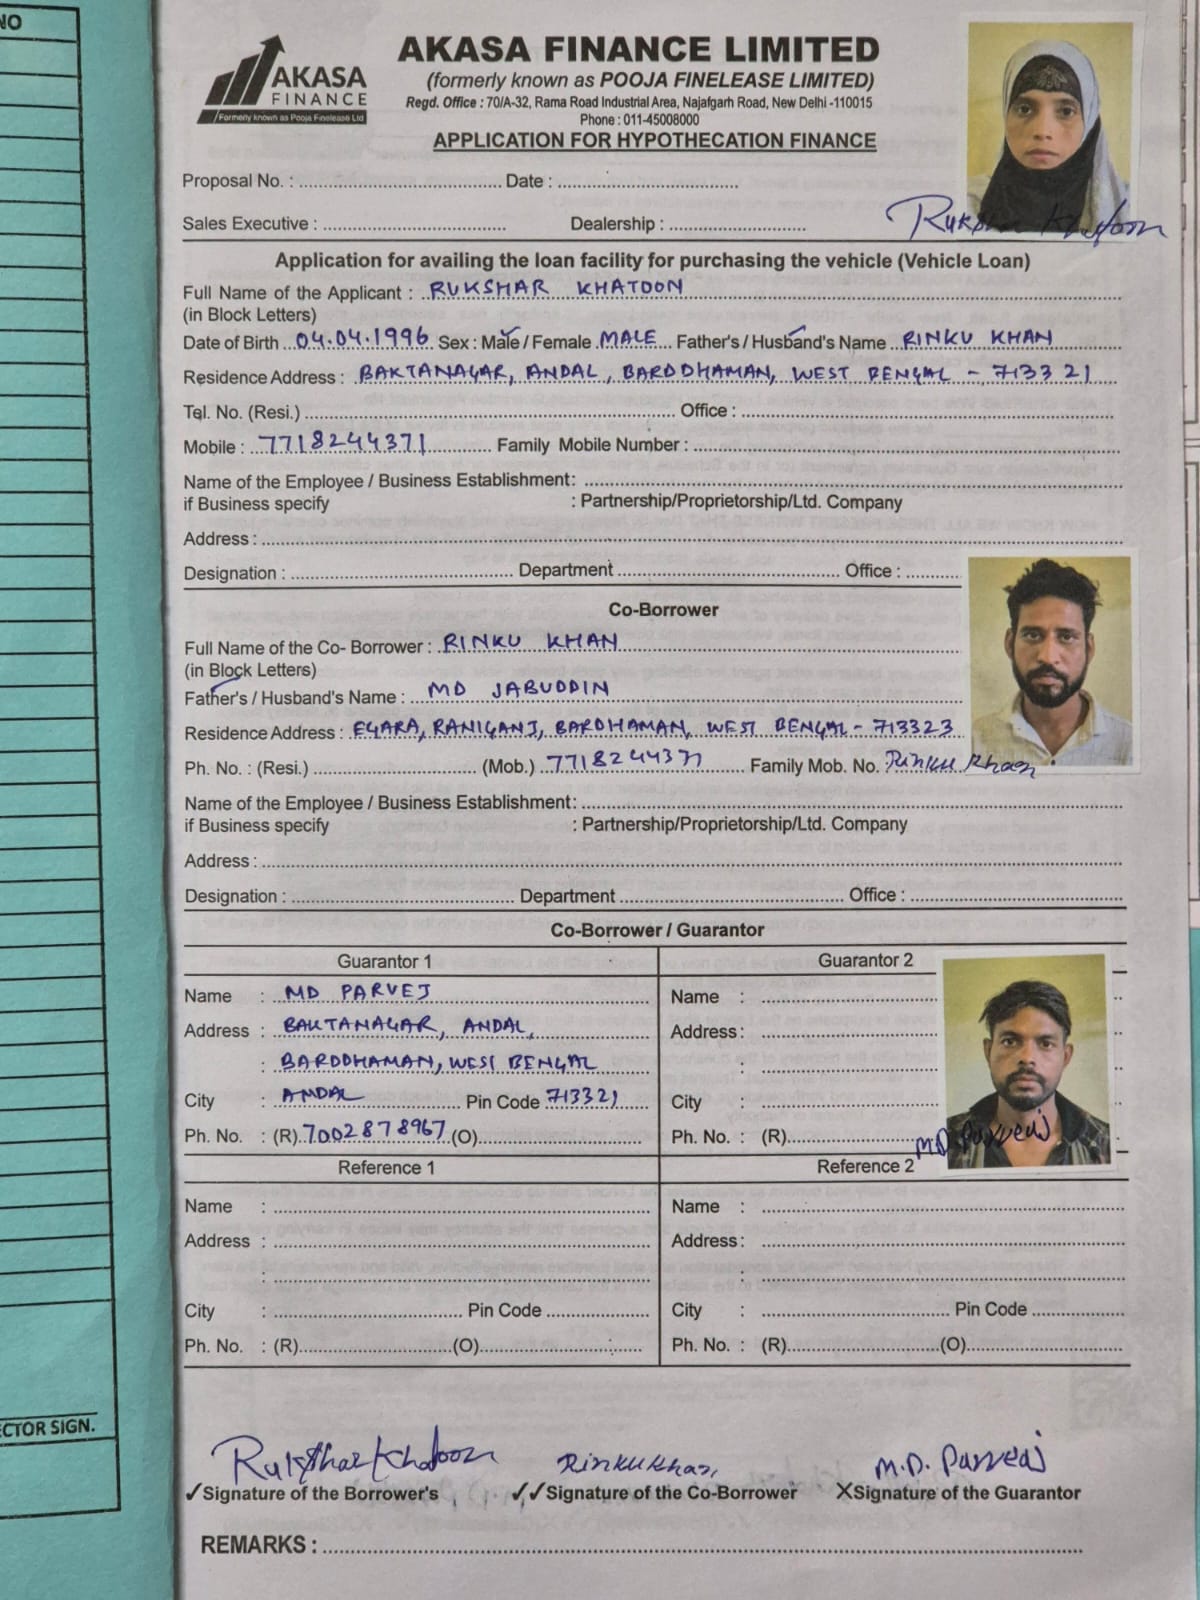 NO
AKASA
FINANCE
Formerly known as Pooja Finelease Ltd
AKASA FINANCE LIMITED
(formerly known as POOJA FINELEASE LIMITED)
Regd. Office : 70/A-32, Rama Road Industrial Area, Najafgarh Road, New Delhi -110015
Phone : 011-45008000
APPLICATION FOR HYPOTHECATION FINANCE
Proposal No. : .................... Date : ....................
Sales Executive : .................... Dealership : ....................
Rukshar Khatoon
Application for availing the loan facility for purchasing the vehicle (Vehicle Loan)
Full Name of the Applicant : RUKSHAR KHATOON
(in Block Letters)
Date of Birth 04.04.1996 Sex : Male / Female MALE Father's / Husband's Name RINKU KHAN
Residence Address : BAKTANAGAR, ANDAL, BARDDHAMAN, WEST BENGAL - 713321
Tel. No. (Resi.) .................... Office : ....................
Mobile : 7718244371 Family Mobile Number : ....................
Name of the Employee / Business Establishment: ....................
if Business specify : Partnership/Proprietorship/Ltd. Company
Address : ....................
Designation : .................... Department .................... Office : ..........
Co-Borrower
Full Name of the Co- Borrower : RINKU KHAN
(in Block Letters)
Father's / Husband's Name : MD JABUDDIN
Residence Address : EGARA, RANIGANJ, BARDHAMAN, WEST BENGAL - 713323
Ph. No. : (Resi.) .................... (Mob.) 7718244371 Family Mob. No. Rinku Khan
Name of the Employee / Business Establishment: ....................
if Business specify : Partnership/Proprietorship/Ltd. Company
Address : ....................
Designation : .................... Department .................... Office : ....................
Co-Borrower / Guarantor
Guarantor 1 Guarantor 2
Name : MD PARVEJ Name : ....................
Address : BAKTANAGAR, ANDAL, Address : ....................
: BARDDHAMAN, WEST BENGAL : ....................
City : ANDAL Pin Code 713321 City : ....................
Ph. No. : (R) 7002878967 (O) .................... Ph. No. : (R) ....................
M.D. Parvej
Reference 1 Reference 2
Name : .................... Name : ....................
Address : .................... Address : ....................
: .................... : ....................
City : .................... Pin Code .................... City : .................... Pin Code ....................
Ph. No. : (R) .................... (O) .................... Ph. No. : (R) .................... (O) ....................
Rukshar Khatoon Rinku Khan M.D. Parvej
✓Signature of the Borrower's ✓✓Signature of the Co-Borrower XSignature of the Guarantor
REMARKS : ....................
CTOR SIGN.